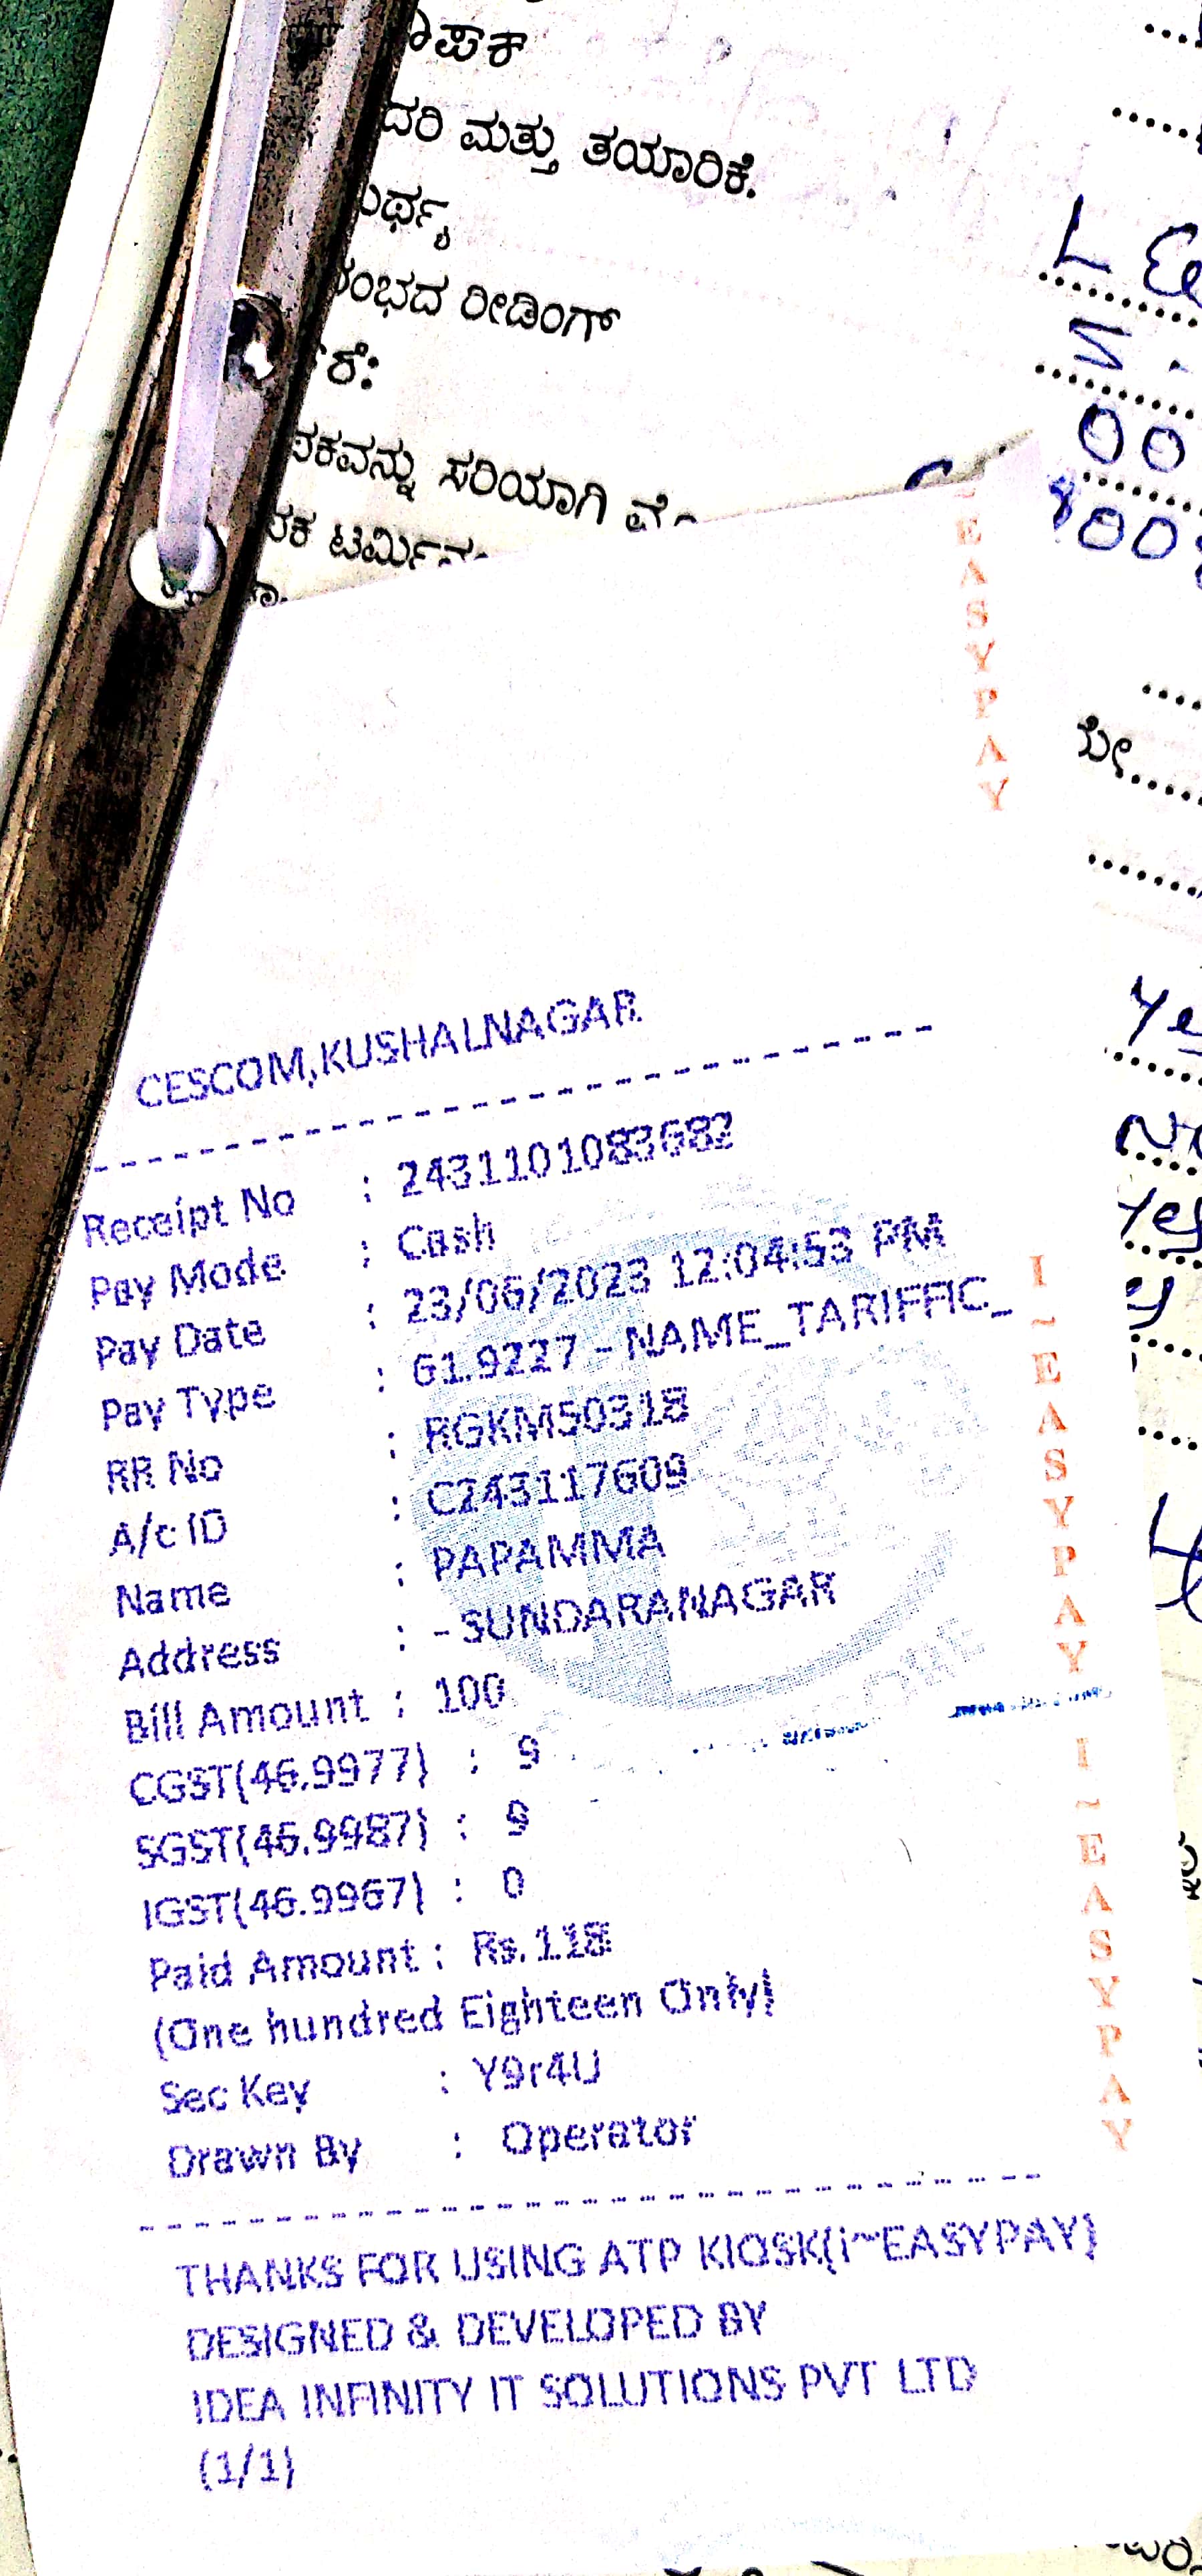 ದರಿ ಮತ್ತು ತಯಾರಿಕೆ.
ರೀಡಿಂಗ್
ಸರಿಯಾಗಿ
I~EASYPAY
CESCOM,KUSHALNAGAR
Receipt No : 2431101083682
Pay Mode : Cash
Pay Date : 23/06/2023 12:04:53 PM
Pay Type : 61.9227 - NAME_TARIFFIC_
RR No : RGKM50318
A/c ID : C243117609
Name : PAPAMMA
Address : - SUNDARANAGAR
Bill Amount : 100
CGST(46.9977) : 9
SGST(46.9987) : 9
IGST(46.9967) : 0
Paid Amount : Rs.118
(One hundred Eighteen Only)
Sec Key : Y9r4U
Drawn By : Operator
THANKS FOR USING ATP KIOSK(i~EASYPAY)
DESIGNED & DEVELOPED BY
IDEA INFINITY IT SOLUTIONS PVT LTD
(1/1)
I~EASYPAY
I~EASYPAY
Yes